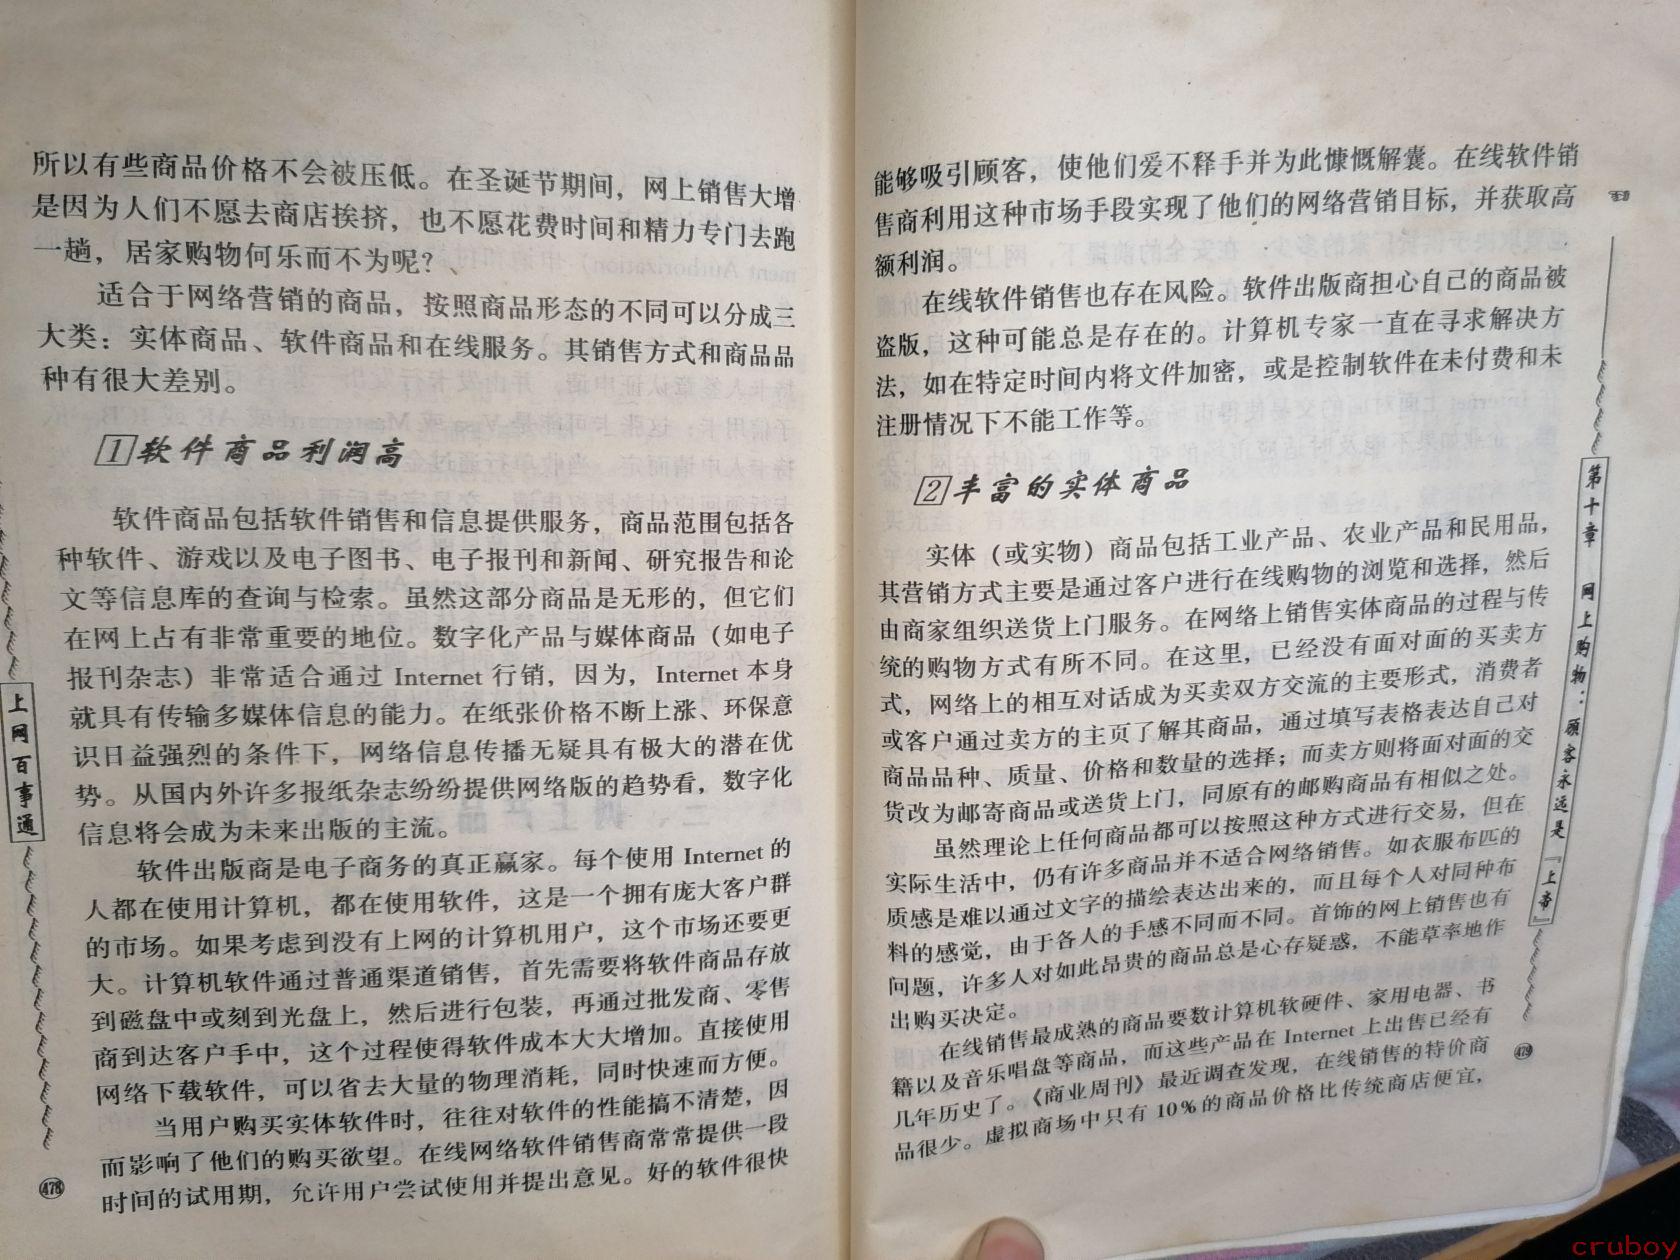 所以有些商品价格不会被压低。在圣诞节期间，网上销售大增
是因为人们不愿去商店挨挤，也不愿花费时间和精力专门去跑
一趟，居家购物何乐而不为呢？
适合于网络营销的商品，按照商品形态的不同可以分成三
大类：实体商品、软件商品和在线服务。其销售方式和商品品
种有很大差别。
1 软件商品利润高
软件商品包括软件销售和信息提供服务，商品范围包括各
种软件、游戏以及电子图书、电子报刊和新闻、研究报告和论
文等信息库的查询与检索。虽然这部分商品是无形的，但它们
在网上占有非常重要的地位。数字化产品与媒体商品（如电子
报刊杂志）非常适合通过 Internet 行销，因为，Internet 本身
就具有传输多媒体信息的能力。在纸张价格不断上涨、环保意
识日益强烈的条件下，网络信息传播无疑具有极大的潜在优
势。从国内外许多报纸杂志纷纷提供网络版的趋势看，数字化
信息将会成为未来出版的主流。
软件出版商是电子商务的真正赢家。每个使用 Internet 的
人都在使用计算机，都在使用软件，这是一个拥有庞大客户群
的市场。如果考虑到没有上网的计算机用户，这个市场还要更
大。计算机软件通过普通渠道销售，首先需要将软件商品存放
到磁盘中或刻到光盘上，然后进行包装，再通过批发商、零售
商到达客户手中，这个过程使得软件成本大大增加。直接使用
网络下载软件，可以省去大量的物理消耗，同时快速而方便。
当用户购买实体软件时，往往对软件的性能搞不清楚，因
而影响了他们的购买欲望。在线网络软件销售商常常提供一段
时间的试用期，允许用户尝试使用并提出意见。好的软件很快
上网百事通
478
能够吸引顾客，使他们爱不释手并为此慷慨解囊。在线软件销
售商利用这种市场手段实现了他们的网络营销目标，并获取高
额利润。
在线软件销售也存在风险。软件出版商担心自己的商品被
盗版，这种可能总是存在的。计算机专家一直在寻求解决方
法，如在特定时间内将文件加密，或是控制软件在未付费和未
注册情况下不能工作等。
2 丰富的实体商品
实体（或实物）商品包括工业产品、农业产品和民用品，
其营销方式主要是通过客户进行在线购物的浏览和选择，然后
由商家组织送货上门服务。在网络上销售实体商品的过程与传
统的购物方式有所不同。在这里，已经没有面对面的买卖方
式，网络上的相互对话成为买卖双方交流的主要形式，消费者
或客户通过卖方的主页了解其商品，通过填写表格表达自己对
商品品种、质量、价格和数量的选择；而卖方则将面对面的交
货改为邮寄商品或送货上门，同原有的邮购商品有相似之处。
虽然理论上任何商品都可以按照这种方式进行交易，但在
实际生活中，仍有许多商品并不适合网络销售。如衣服布匹的
质感是难以通过文字的描绘表达出来的，而且每个人对同种布
料的感觉，由于各人的手感不同而不同。首饰的网上销售也有
问题，许多人对如此昂贵的商品总是心存疑惑，不能草率地作
出购买决定。
在线销售最成熟的商品要数计算机软硬件、家用电器、书
籍以及音乐唱盘等商品，而这些产品在 Internet 上出售已经有
几年历史了。《商业周刊》最近调查发现，在线销售的特价商
品很少。虚拟商场中只有 10%的商品价格比传统商店便宜，
第十章 网上购物：顾客永远是『上帝』
479
cruboy